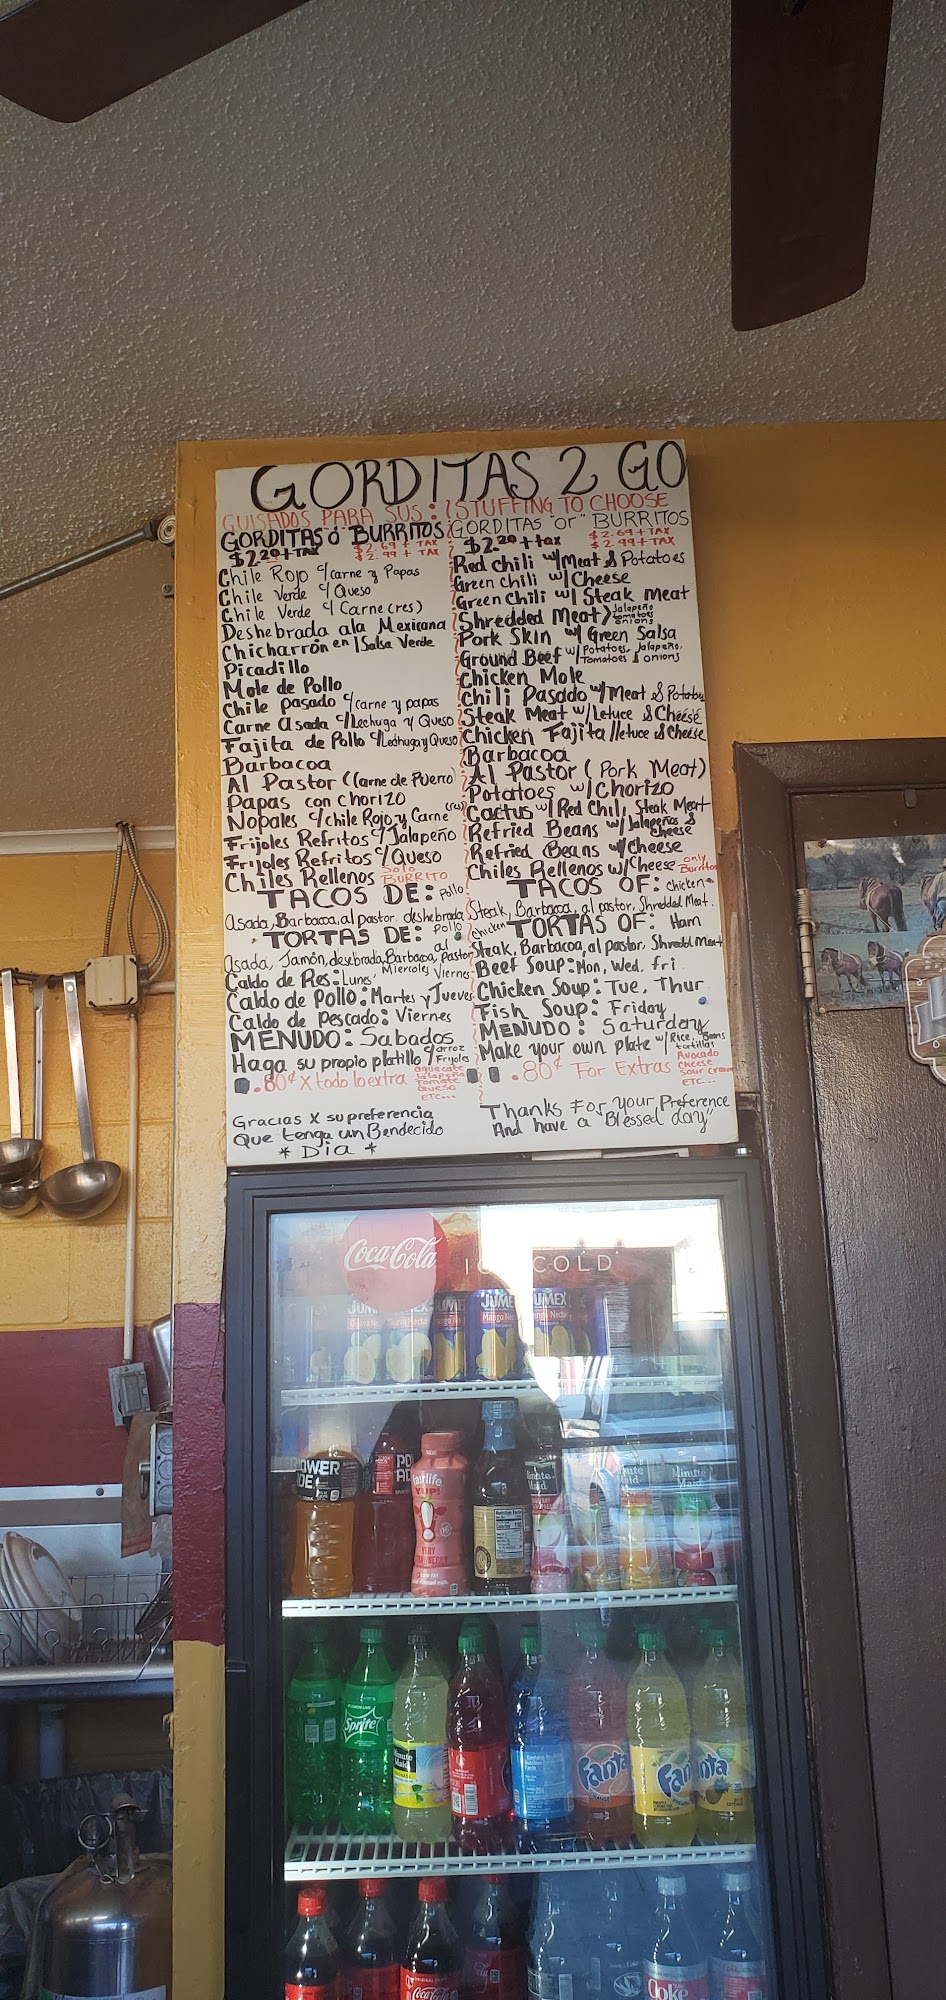 GORDITAS 2 GO
GUISADOS PARA SUS:
GORDITAS ó BURRITOS
$2.20 + TAX
$2.69 + TAX
$2.99 + TAX
Chile Rojo c/carne y Papas
Chile Verde c/ Queso
Chile Verde c/ Carne (res)
Deshebrada ala Mexicana
Chicharrón en Salsa Verde
Picadillo
Mole de Pollo
Chile pasado c/carne y papas
Carne Asada c/Lechuga y Queso
Fajita de Pollo c/Lechuga y Queso
Barbacoa
Al Pastor (Carne de Puerco)
Papas con Chorizo
Nopales c/chile Rojo y Carne (res)
Frijoles Refritos c/Jalapeño
Frijoles Refritos c/Queso
Chiles Rellenos Solo BURRITO
TACOS DE: Pollo
Asada, Barbacoa, al pastor deshebrada
TORTAS DE: Pollo
Asada, Jamón, desebrada, Barbacoa, al pastor
Caldo de Res: Lunes, Miercoles Viernes
Caldo de Pollo: Martes y Jueves
Caldo de Pescado: Viernes
MENUDO: Sabados
Haga su propio platillo c/arroz Frijoles
.80¢ X todo lo extra
aguacate
Jalapeño
Tomate
Queso
ETC...
Gracias X su preferencia
Que tenga un Bendecido
* Dia *
STUFFING TO CHOOSE
GORDITAS "or" BURRITOS
$2.20 + tax
$2.69 + TAX
$2.99 + TAX
Red chili w/Meat & Potatoes
Green chili w/ Cheese
Green Chili w/ Steak meat
Shredded Meat Jalapeño tomatoes onions
Pork Skin w/ Green Salsa
Ground Beef w/ Potatoes, Jalapeño, Tomatoes & onions
Chicken Mole
Chili Pasado w/Meat & Potatoes
Steak Meat w/Letuce & Cheese
Chicken Fajita /letuce & Cheese
Barbacoa
Al Pastor (Pork Meat)
Potatoes w/Chorizo
Cactus w/ Red Chili, Steak Meat
Refried Beans w/Jalapeños & Cheese
Refried Beans w/Cheese
Chiles Rellenos w/Cheese only Burritos
TACOS OF: chicken
Steak, Barbacoa, al pastor, Shredded Meat.
chicken TORTAS OF: Ham
Steak, Barbacoa, al pastor, Shredded Meat
Beef Soup: Mon, Wed, fri
Chicken Soup: Tue, Thur
Fish Soup: Friday
MENUDO: Saturday
Make your own plate w/Rice, Beans tortillas
.80¢ For Extras
Avocado
Cheese
Sour Cream
ETC...
Thanks For your Preference
And have a "Blessed day"
Coca-Cola
COLD
JUMEX
Mango
POWER
fairlife
YUP!
VERY
Minute Maid
Minute Maid
Sprite
Minute Maid
Fanta
Fanta
Fanta
Coca-Cola
Coke